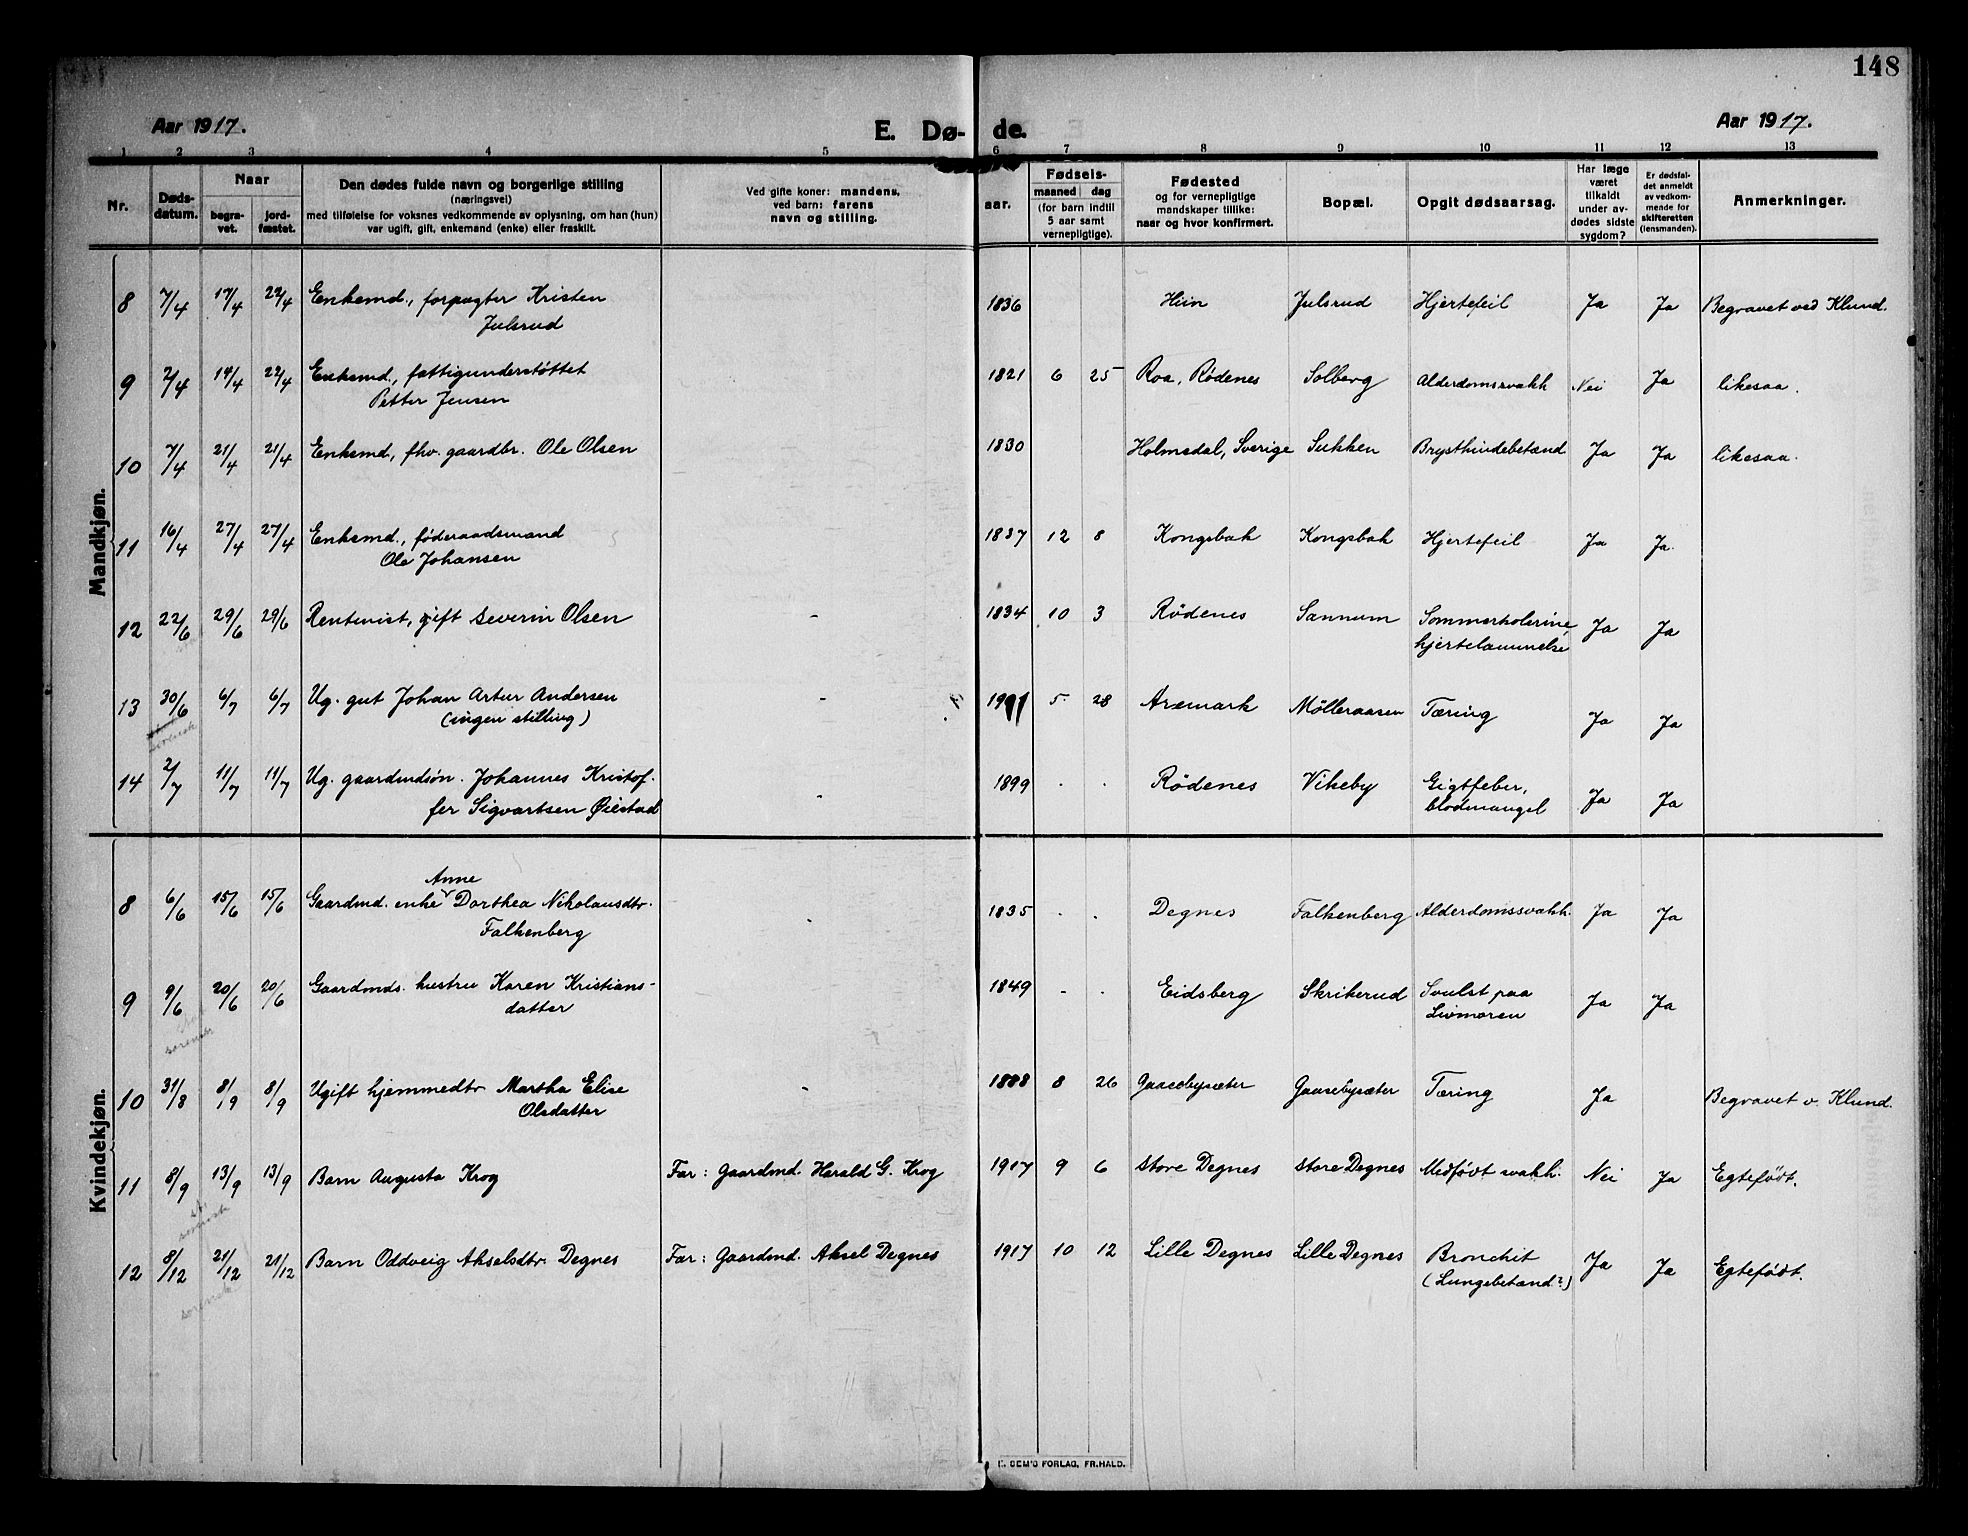 148
Aar 1917.
E. Dø- de.
Aar 1917.
1 2 3 4 5 6 7 8 9 10 11 12 13
Nr.
Døds-
datum.
Naar
begra-
vet.
jord-
fæstet.
Den dødes fulde navn og borgerlige stilling
(næringsvei)
med tilføielse for voksnes vedkommende av oplysning, om han (hun)
var ugift, gift, enkemand (enke) eller fraskilt.
Ved gifte koner: mandens,
ved barn: farens
navn og stilling.
aar.
Fødsels-
maaned dag
(for barn indtil
5 aar samt
vernepligtige).
Fødested
og for vernepligtige
mandskaper tillike:
naar og hvor konfirmert.
Bopæl.
Opgit dødsaarsag.
Har læge
været
tilkaldt
under av-
dødes sidste
sygdom?
Er dødsfal-
det anmeldt
av vedkom-
mende for
skifteretten
(lensmanden).
Anmerkninger.
Mandkjøn.
8 7/4 17/4 22/4 Enkemd., forpagter Kristen
Julsrud
1836 Hiin Julsrud Hjertefeil Ja Ja Begravet ved Klund.
9 7/4 14/4 22/4 Enkemd., fattigunderstøttet
Petter Jensen
1821 6 25 Roa, Rødenes Solberg Alderdomssvakh Nei Ja likesaa.
10 7/4 21/4 21/4 Enkemd, fhv. gaardbr. Ole Olsen
1830 Holmedal, Sverige Sukken Brysthindebetænd Ja Ja likesaa.
11 16/4 27/4 27/4 Enkemd., føderaadsmand
Ole Johansen
1837 12 8 Kongsbak Kongsbak Hjertefeil Ja Ja.
12 22/6 29/6 29/6 Rentenist, gift Severin Olsen -
1834 10 3 Rødenes Sannum Sommerkolerine,
hjertelammelse
Ja Ja
13 30/6 6/7 6/7 Ug. gut Johan Artur Andersen
(ingen stilling)
-
5 28 Aremark Mølleraasen Tæring Ja Ja
14 2/7 11/7 11/7 Ug. gaardmdsøn. Johannes Kristof-
fer Sigvartsen Øiestad
-
1899 . . Rødenes Vikeby Gigtfeber,
blodmangel
Ja Ja
Kvindekjøn.
8 6/6 15/6 15/6 Anne
Gaardmd. enke Dorthea Nikolausdtr.
Falkenberg
.
1835 . . Degnes Falkenberg Alderdomssvakh. Ja Ja
9 9/6 20/6 20/6 Gaardmds. hustru Karen Kristians-
datter
1849 - . Eidsberg Skrikerud Svulst paa
Livmoren
Ja Ja
10 31/8 8/9 8/9 Ugift hjemmedtr Martha Elise
Olsdatter
-
1888 8 26 Gaasebysæter Gaasebysæter Tæring Ja Begravet v. Klund.
11 8/9 13/9 13/9 Barn Augusta Krog Far: Gaardmd. Harald G. Krog
1917 9 6 Store Degnes Store Degnes Medfødt svakh. Nei Ja Egtefødt.
12 8/12 21/12 21/12 Barn Oddveig Akselsdtr. Degnes Far: Gaardmd. Aksel Degnes
1917 10 12 Lille Degnes Lille Degnes Bronchit
(Lungebetænd?)
Ja Ja Egtefødt.
SEM'S FORLAG, FR.HALD.